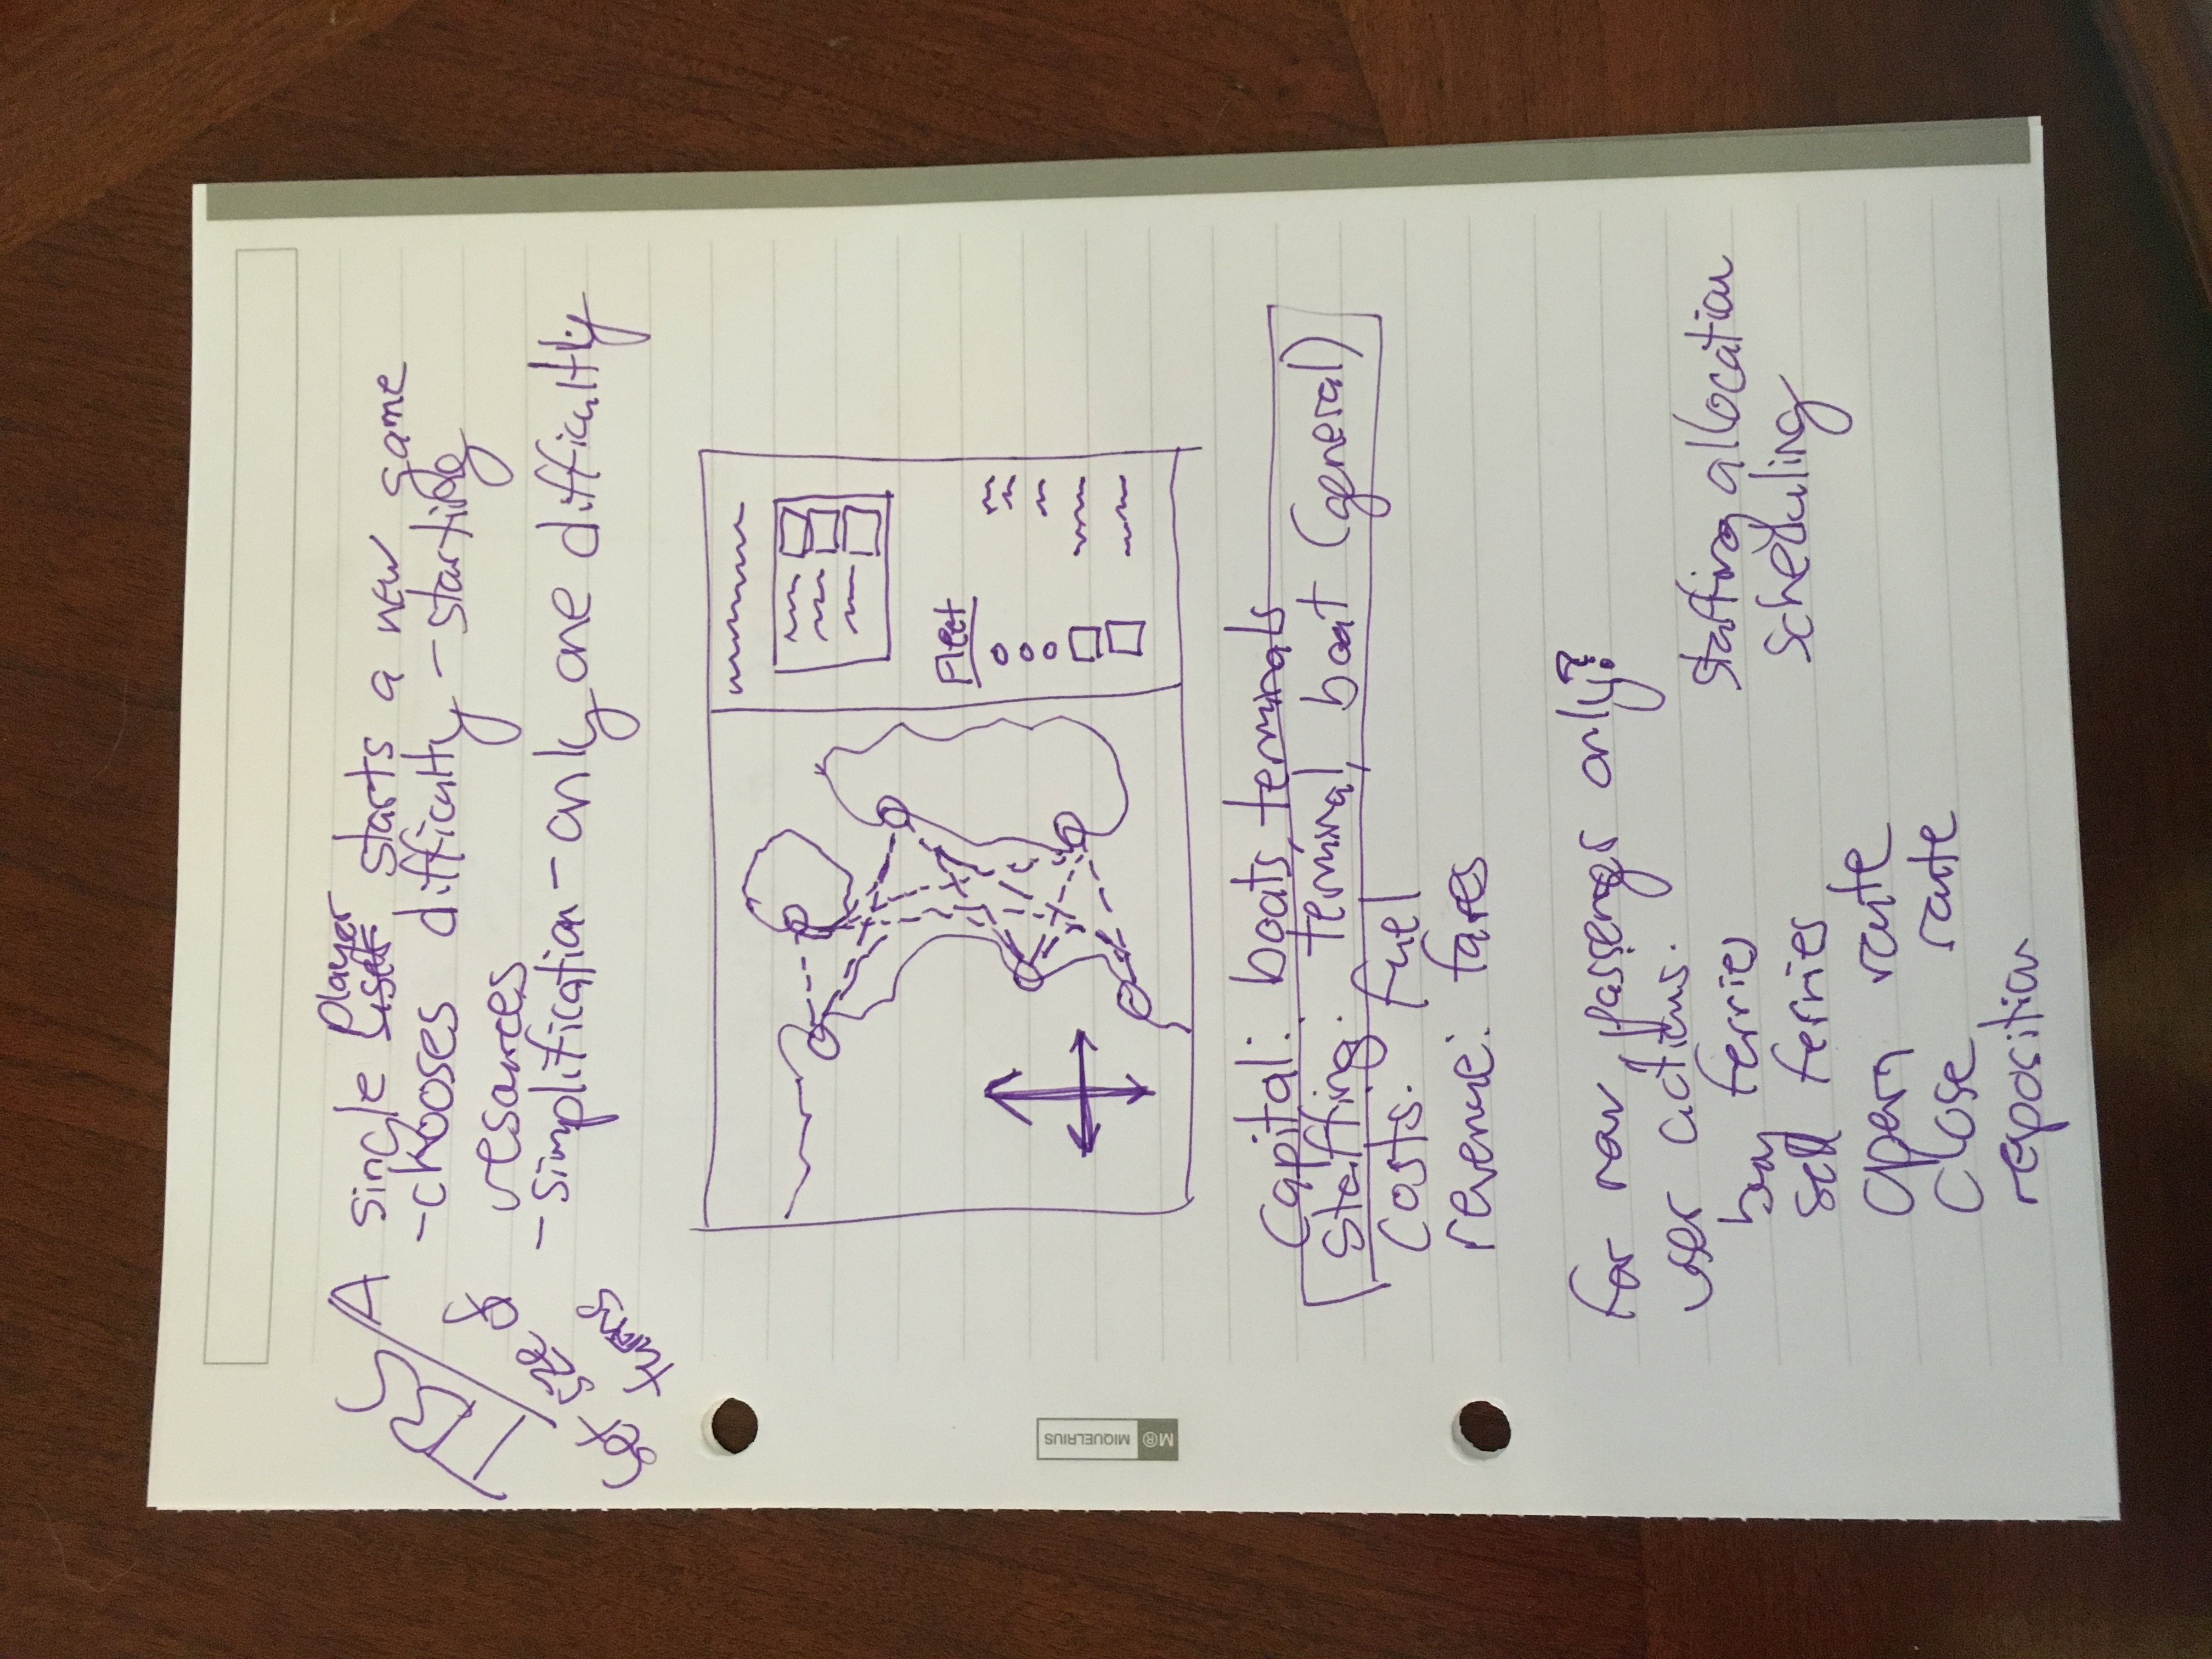 TBS
Set size of
turns
A single user player starts a new game
-chooses difficulty - starting
resources
-simplification - only one difficultly
Fleet
MIQUELRIUS
M®
Capital: boats, terminals
Staffing: terminal, boat (general)
Costs: fuel
revenue: fares
for now, passengers only?
user actions:
buy ferries
sell ferries
open route
close route
reposition
staffing allocation
scheduling